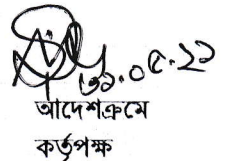 ৩১.০৫.২১
আদেশক্রমে
কর্তৃপক্ষ